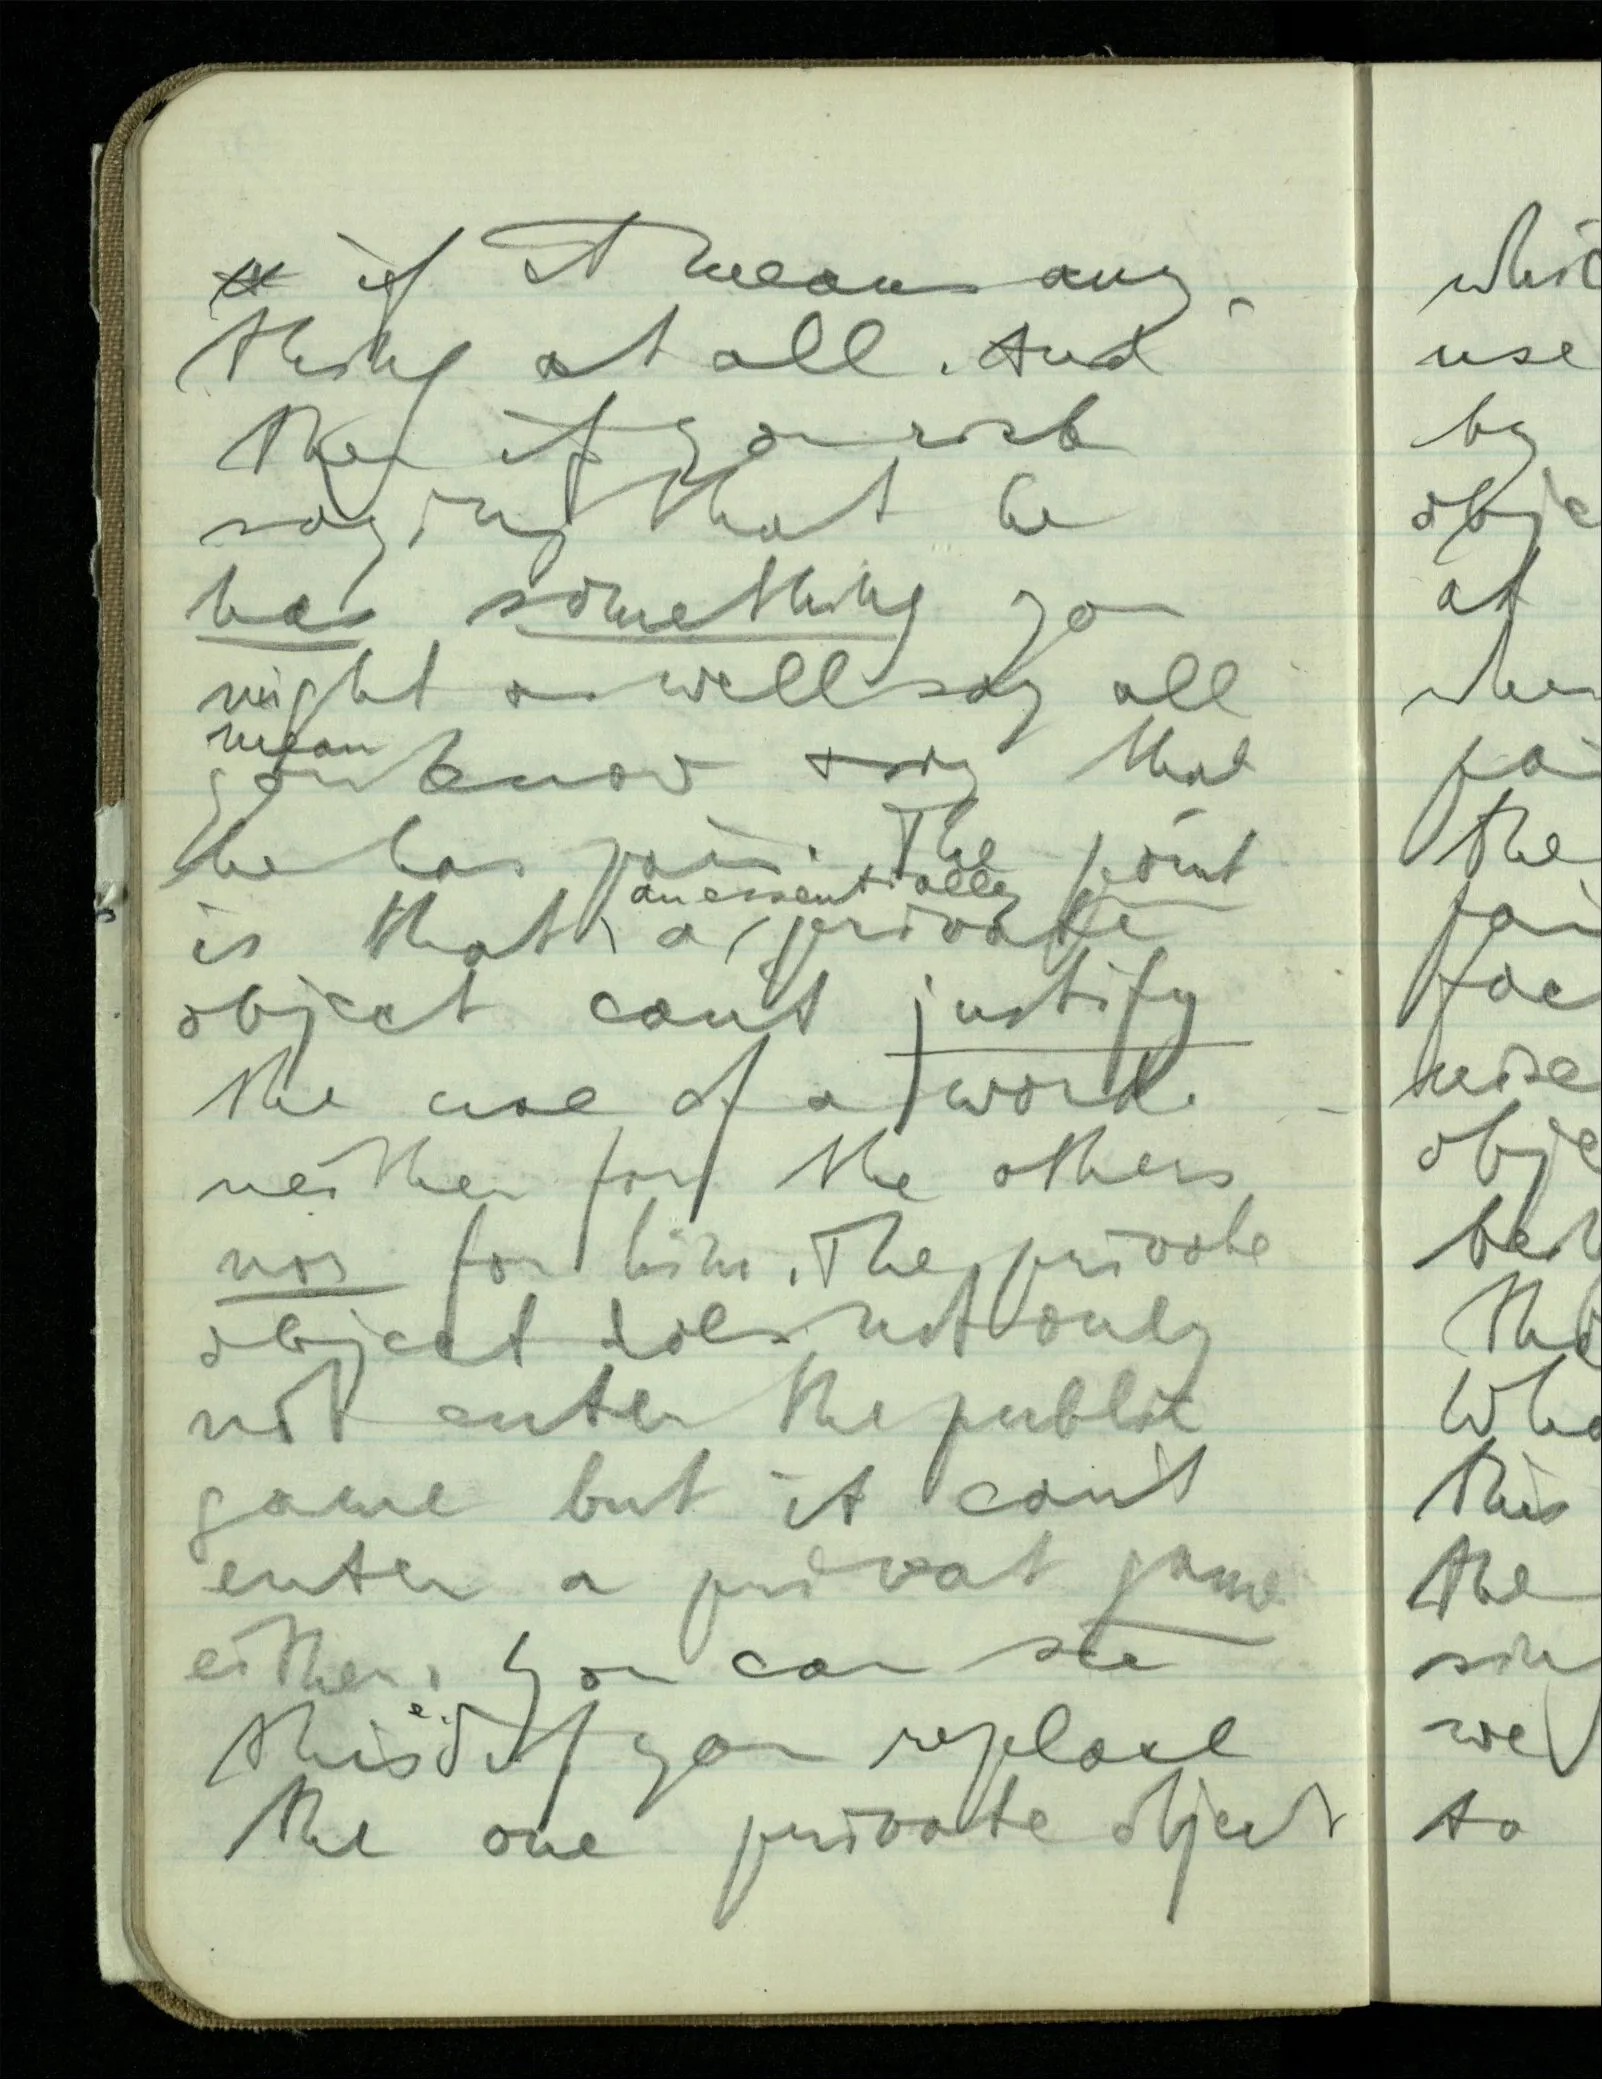 if it means any-
thing at all. And
then if you risk
saying that he
has something you
might as well say all
mean
you know &say that
he has pain. The point
an essentially
is that a private
object can't justify
the use of a word
neither for the others
nor for him. The private
object does not only
not enter the public
game but it can't
enter a privat game
either. You can see
this e.g. if you replace
the one private object
whic
use
by
objec
at
when
pai
the
pai
fac
obje
the
Wha
this
the
we
to